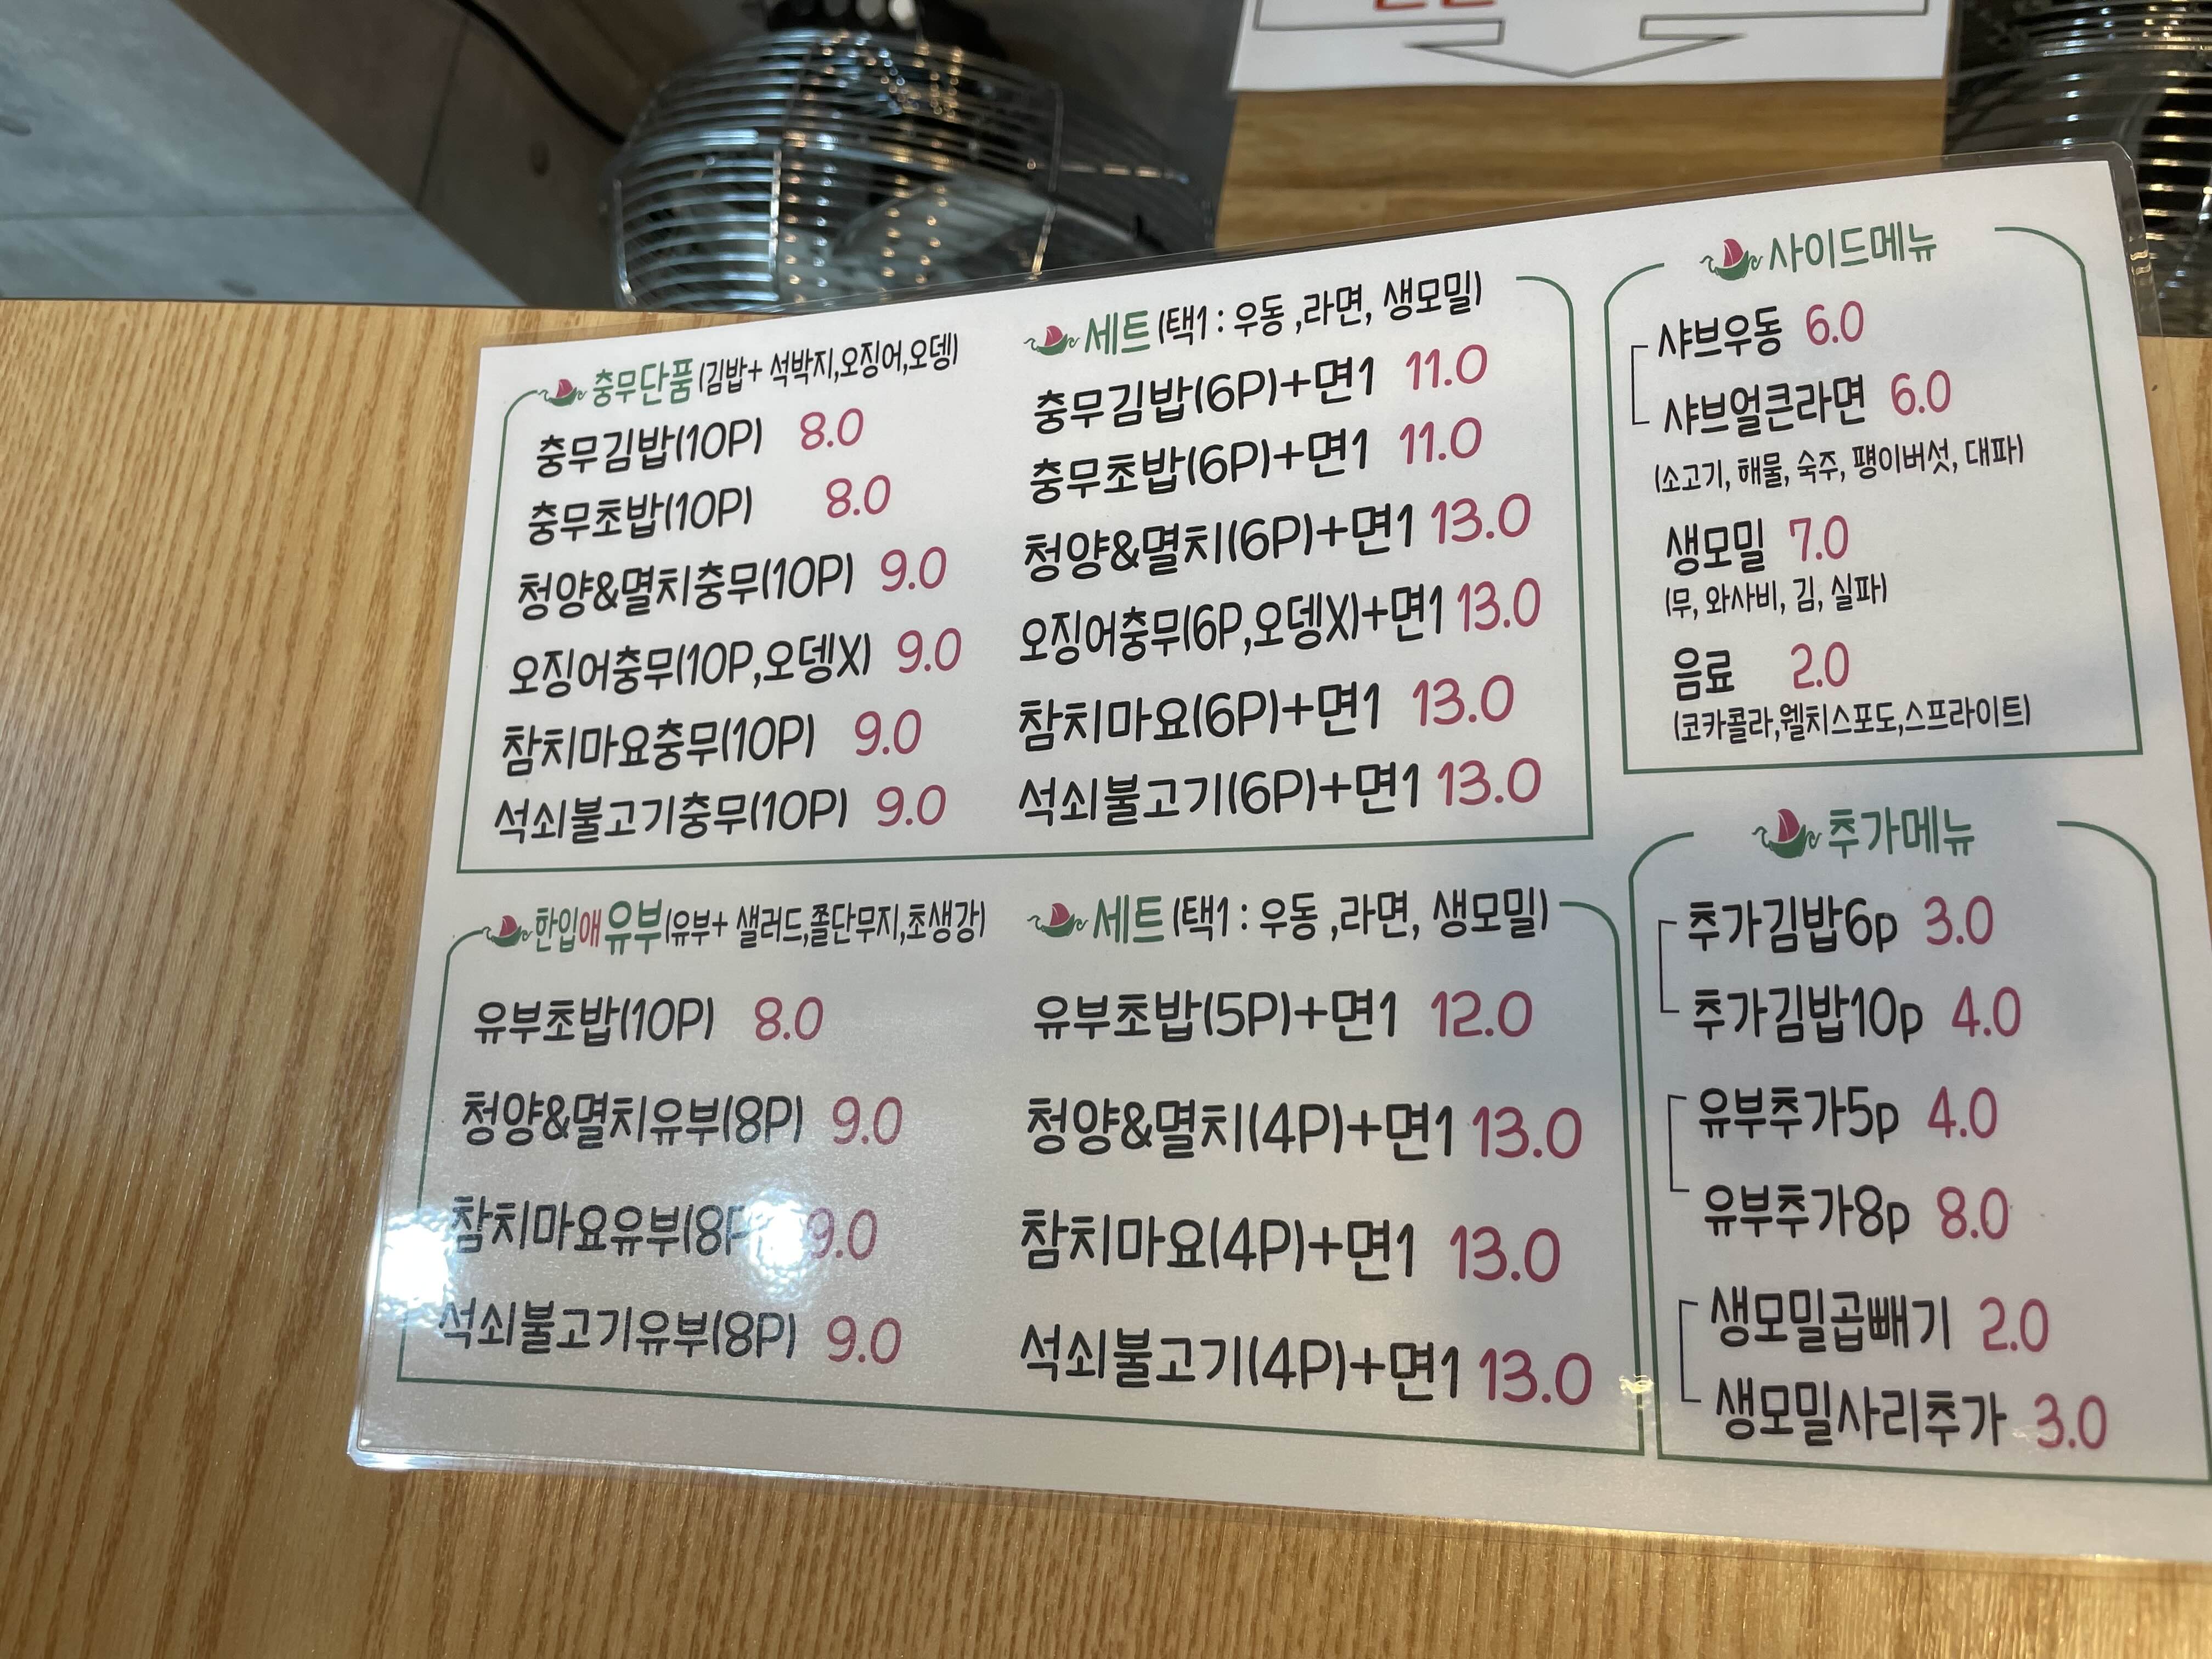 충무단품 (김밥+ 석박지,오징어,오뎅)
충무김밥(10P) 8.0
충무초밥(10P) 8.0
청양&멸치충무(10P) 9.0
오징어충무(10P,오뎅X) 9.0
참치마요충무(10P) 9.0
석쇠불고기충무(10P) 9.0
세트 (택1 : 우동 ,라면, 생모밀)
충무김밥(6P)+면1 11.0
충무초밥(6P)+면1 11.0
청양&멸치(6P)+면1 13.0
오징어충무(6P,오뎅X)+면1 13.0
참치마요(6P)+면1 13.0
석쇠불고기(6P)+면1 13.0
한입애유부(유부+ 샐러드,쫄단무지,초생강)
유부초밥(10P) 8.0
청양&멸치유부(8P) 9.0
참치마요유부(8P 9.0
석쇠불고기유부(8P) 9.0
세트 (택1 : 우동 ,라면, 생모밀)
유부초밥(5P)+면1 12.0
청양&멸치(4P)+면1 13.0
참치마요(4P)+면1 13.0
석쇠불고기(4P)+면1 13.0
사이드메뉴
샤브우동 6.0
샤브얼큰라면 6.0
(소고기, 해물, 숙주, 팽이버섯, 대파)
생모밀 7.0
(무, 와사비, 김, 실파)
음료 2.0
(코카콜라,웰치스포도,스프라이트)
추가메뉴
추가김밥6p 3.0
추가김밥10p 4.0
유부추가5p 4.0
유부추가8p 8.0
생모밀곱빼기 2.0
생모밀사리추가 3.0